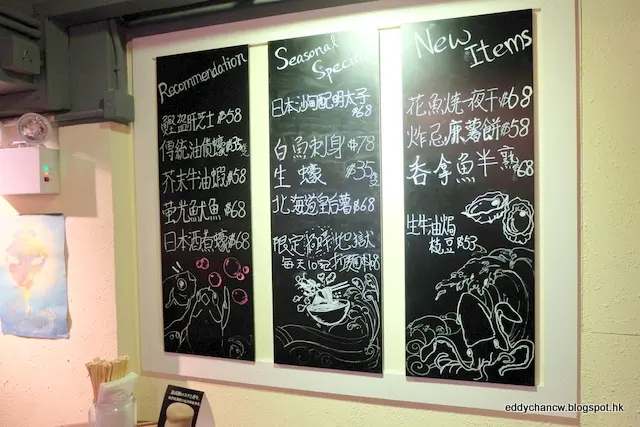 Recommendation
鰹盜肝芝士 $58
傳統油債蠔 $35隻
芥末牛油蝦 $58
螢光魷魚 $68
日本酒煮蠔 $68
Seasonal
Special
日本沙甸配明太子
$68
白魚刺身 $78
生蠔 $35隻
北海道皇后薯 $68
限定 海鮮地獄
每天10碗 拉麵 $
New
Items
花魚燒一夜干 $68
炸忌廉薯餅 $58
吞拿魚半熟 $68
生牛油焗
枝豆 $53
eddychancw.blogspot.hk